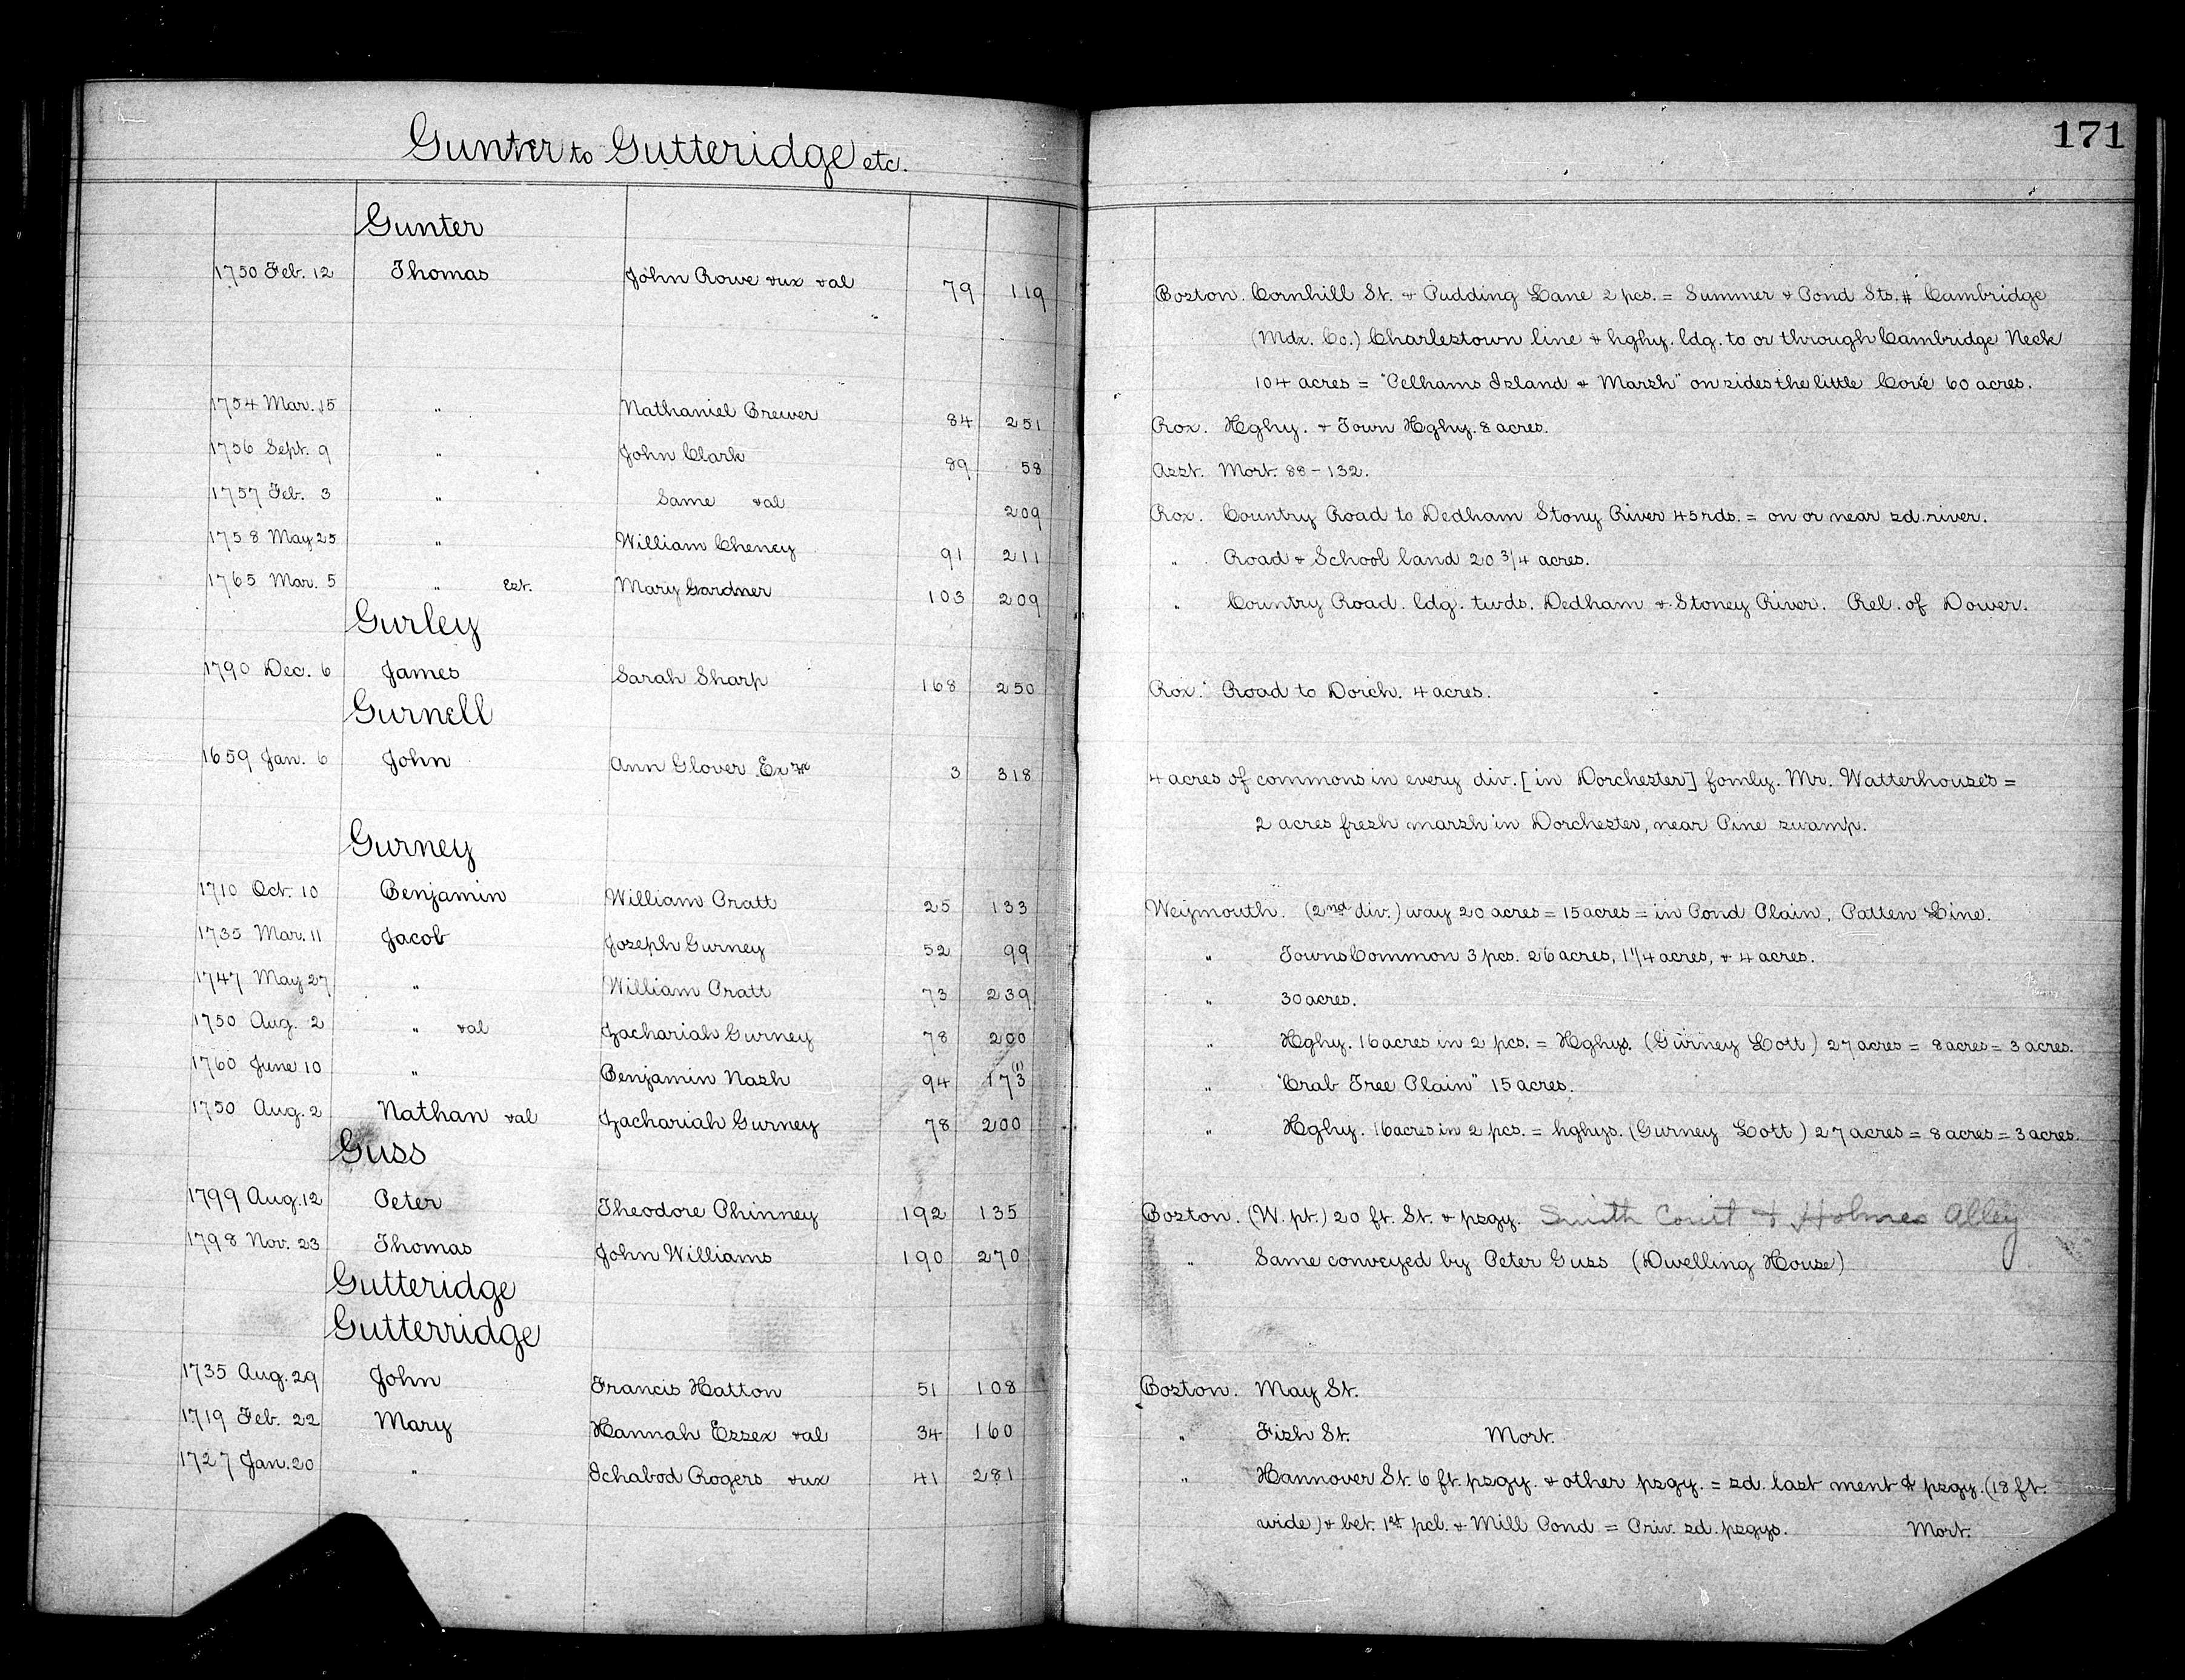 Gunter to Gutteridge etc.
171
Gunter
1750 Feb. 12 Thomas John Rowe & ux & al 79 119 Boston. Cornhill St. & Pudding Lane 2 pcs. = Summer & Pond Sts. # Cambridge
(Mdx. Co.) Charlestown line & hghy. ldg. to or through Cambridge Neck
104 acres = "Pelhams Island & Marsh" on sides the little Cove 60 acres.
1754 Mar. 15 " Nathaniel Brewer 84 251 Rox. Hghy. & Town Hghy. 8 acres.
1756 Sept. 9 " John Clark 89 58 Asst. Mort. 88-132.
1757 Feb. 3 " Same & al 209 Rox. Country Road to Dedham Stony River 45 rds. = on or near sd. river.
1758 May 25 " William Cheney 91 211 " Road & School land 20 3/4 acres.
1765 Mar. 5 " Est. Mary Gardner 103 209 " Country Road. ldg. twds. Dedham & Stoney River. Rel. of Dower.
Gurley
1790 Dec. 6 James Sarah Sharp 168 250 Rox. Road to Dorch. 4 acres.
Gurnell
1659 Jan. 6 John Ann Glover Exrx 3 318 4 acres of commons in every div. [in Dorchester] fomly. Mr. Watterhouse's =
2 acres fresh marsh in Dorchester, near Pine swamp.
Gurney
1710 Oct. 10 Benjamin William Pratt 25 133 Weymouth. (2nd div.) way 20 acres = 15 acres = in Pond Plain, Patten Line.
1735 Mar. 11 Jacob Joseph Gurney 52 99 " Towns Common 3 pcs. 26 acres, 1 1/4 acres, & 4 acres.
1747 May 27 " William Pratt 73 239 " 30 acres.
1750 Aug. 2 " & al Zachariah Gurney 78 200 " Hghy. 16 acres in 2 pcs. = Hghys. (Gurney Lott) 27 acres = 8 acres = 3 acres.
1760 June 10 " Benjamin Nash 94 173(1) " "Crab Tree Plain" 15 acres.
1750 Aug. 2 Nathan & al Zachariah Gurney 78 200 " Hghy. 16 acres in 2 pcs. = hghys. (Gurney Lott) 27 acres = 8 acres = 3 acres.
Guss
1799 Aug. 12 Peter Theodore Phinney 192 135 Boston. (W. pt.) 20 ft. St. & psgy. Smith Court & Holmes Alley
1798 Nov. 23 Thomas John Williams 190 270 " Same conveyed by Peter Guss (Dwelling House)
Gutteridge
Gutterridge
1735 Aug. 29 John Francis Hatton 51 108 Boston. May St.
1719 Feb. 22 Mary Hannah Essex & al 34 160 " Fish St. Mort.
1727 Jan. 20 " Ichabod Rogers & ux 41 281 " Hannover St. 6 ft. psgy. & other psgy. = sd. last ment d psgy. (18 ft.
wide) & bet. 1st pcl. & Mill Pond = Priv. sd. psgys. Mort.